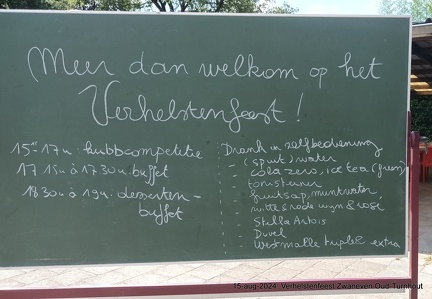 Meer dan welkom op het
Verhelstenfeest!
15u-17u: kubbcompetitie
17 15u à 17 30u buffet
18 30u à 19u: desserten-
buffet
Drank in zelfbediening
- (spuit)water
- cola zero, ice tea (green)
- fruitsap, muntwater,
witte & rode wijn & rosé
- Stella Artois
- Duvel
- Westmalle tripel & extra
15-aug-2024 Verhelstenfeest Zwaneven Oud-Turnhout